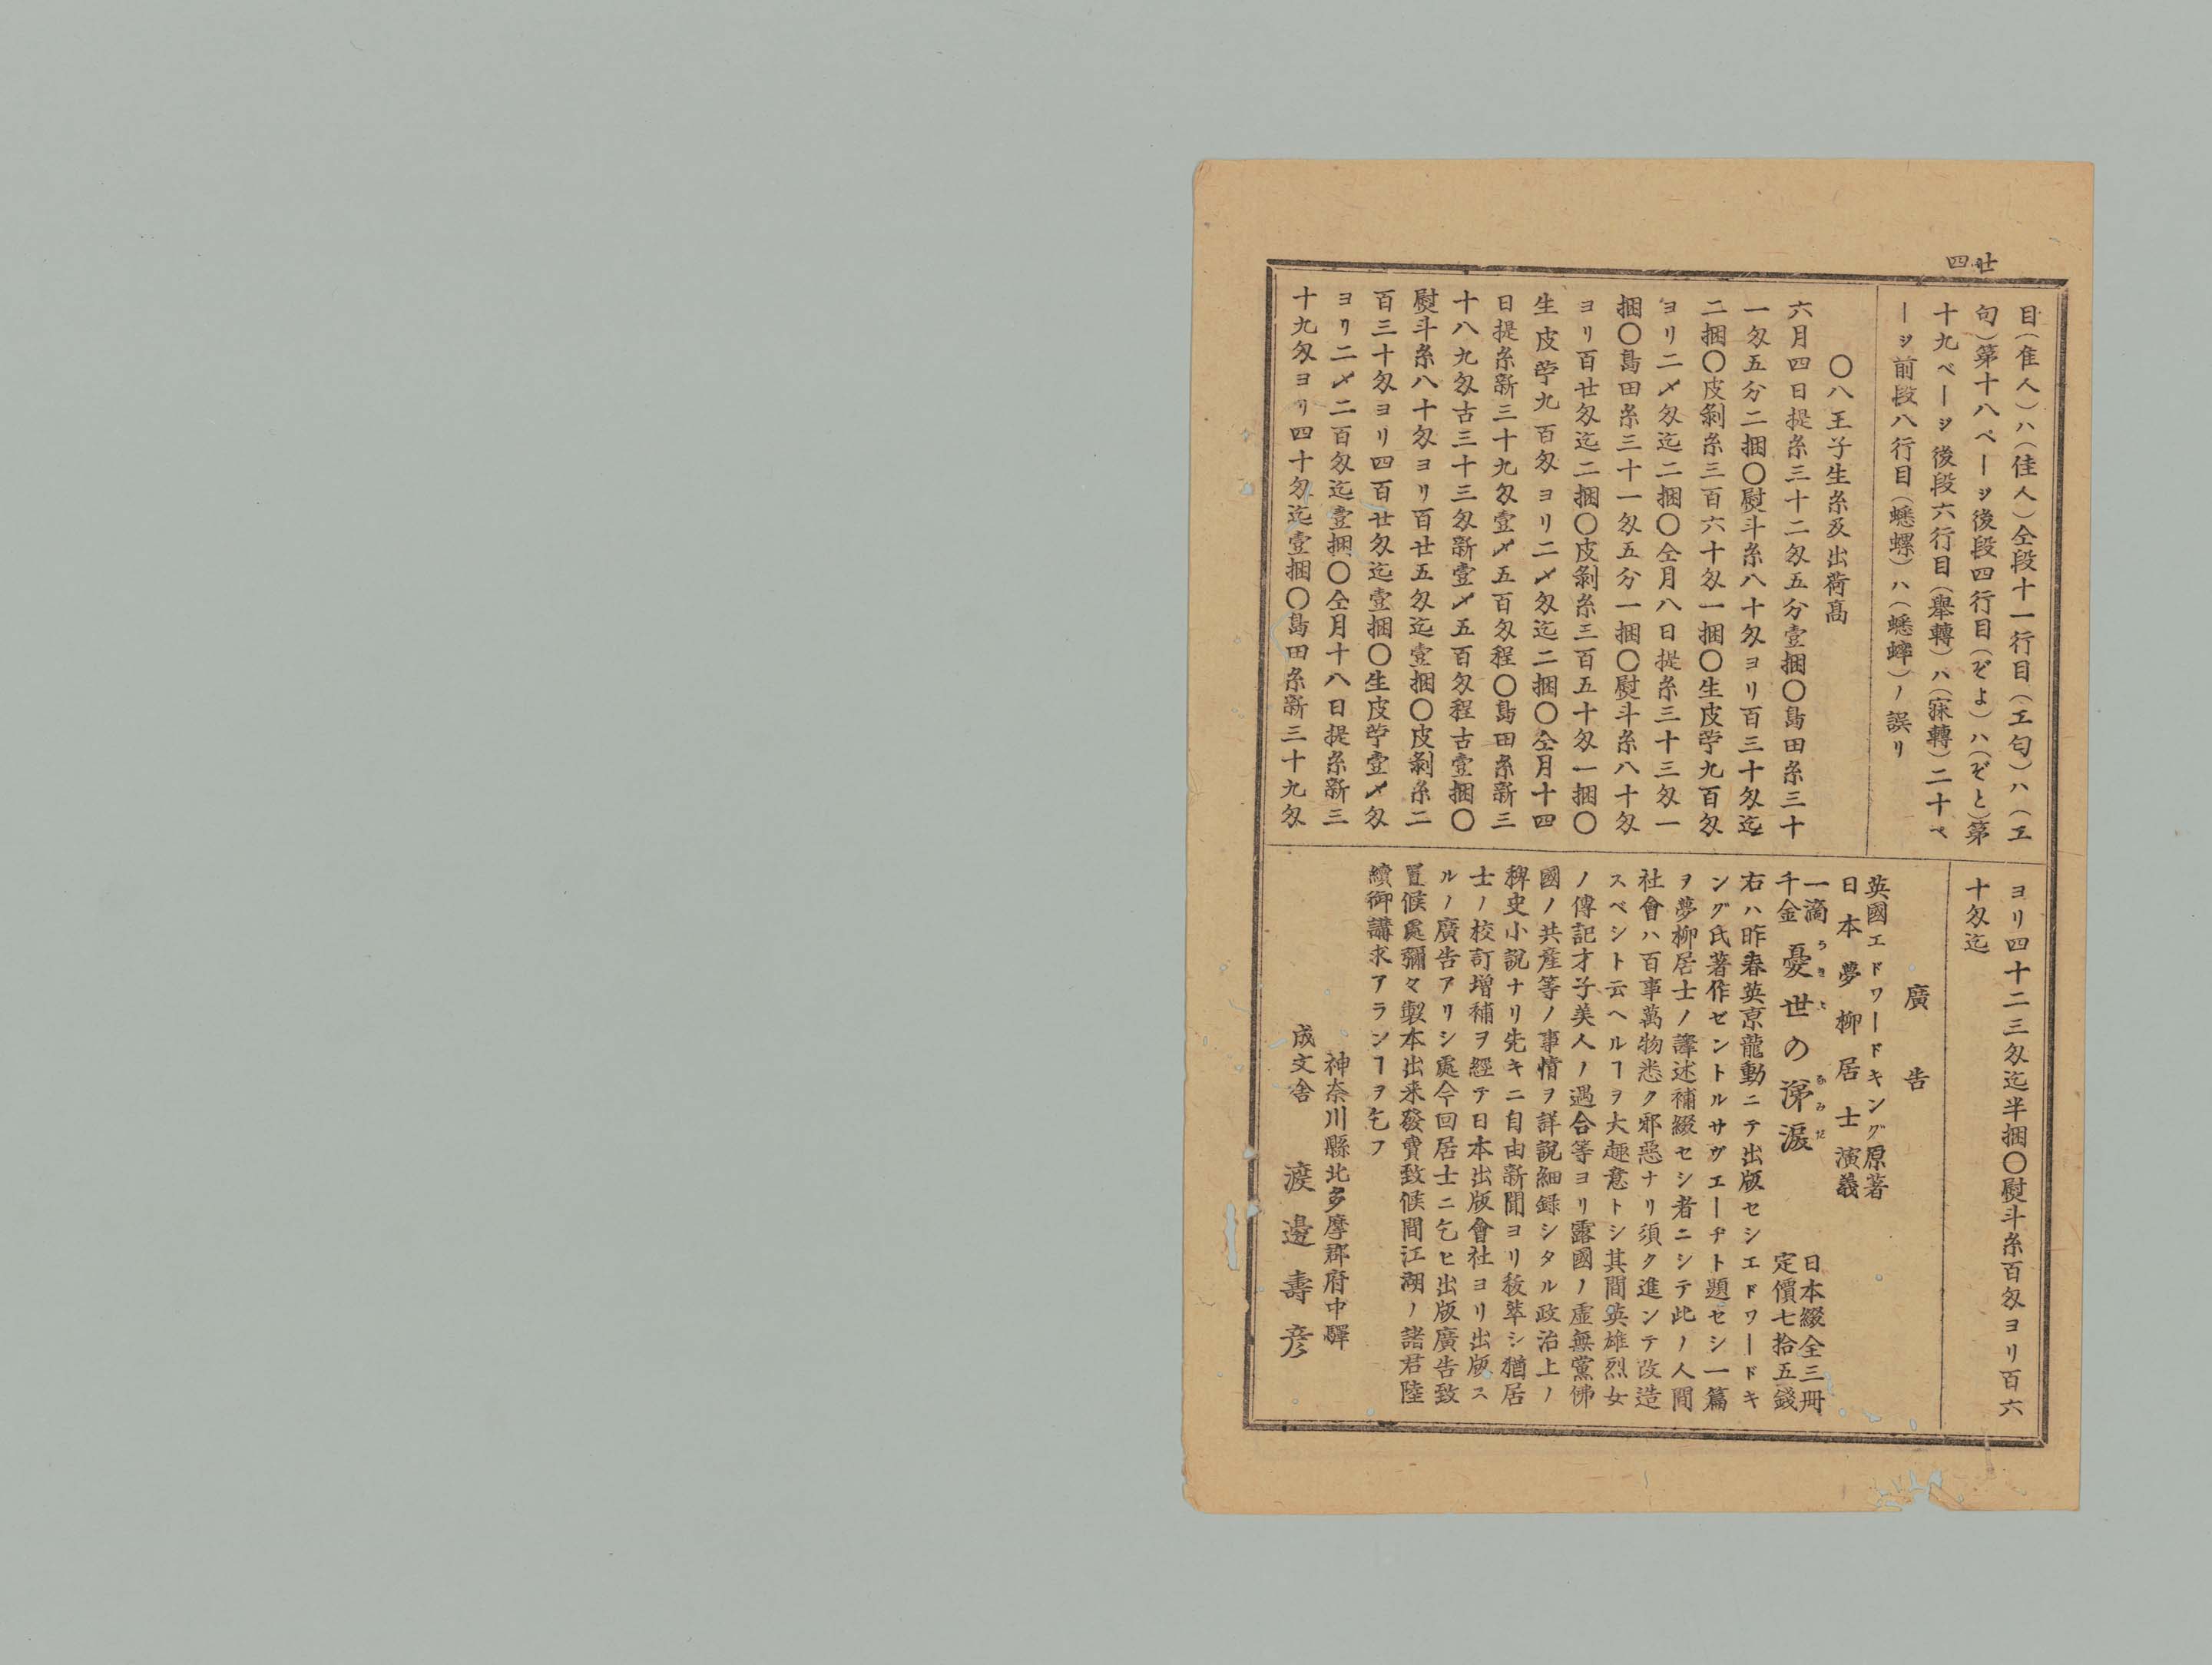 廿四
目（隹人）ハ（佳人）仝段十一行目（工匂）ハ（工
句）第十八ページ後段四行目（ぞよ）ハ（ぞと）第
十九ページ後段六行目（舉轉）ハ（寐轉）二十ペ
ージ前段八行目（蟋螺）ハ（蟋蟀）ノ誤リ
〇八王子生糸及出荷高
六月四日提糸三十二匁五分壹捆〇島田糸三十
一匁五分二捆〇熨斗糸八十匁ヨリ百三十匁迄
二捆〇皮剝糸三百六十匁一捆〇生皮苧九百匁
ヨリ二〆匁迄二捆〇仝月八日提糸三十三匁一
捆〇島田糸三十一匁五分一捆〇熨斗糸八十匁
ヨリ百廿匁迄二捆〇皮剝糸三百五十匁一捆〇
生皮苧九百匁ヨリ二〆匁迄二捆〇仝月十四
日提糸新三十九匁壹〆五百匁程〇島田糸新三
十八九匁古三十三匁新壹〆五百匁程古壹捆〇
熨斗糸八十匁ヨリ百廿五匁迄壹捆〇皮剝糸二
百三十匁ヨリ四百廿匁迄壹捆〇生皮苧壹〆匁
ヨリ二〆二百匁迄壹捆〇仝月十八日提糸新三
十九匁ヨリ四十匁迄壹捆〇島田糸新三十九匁
ヨリ四十二三匁迄半捆〇熨斗糸百匁ヨリ百六
十匁迄
廣告
英國エドワードキング原著
日本夢柳居士演義
一滴千金 憂世の涕涙 日本綴全三冊 定價七拾五錢
うきよ なみだ
右ハ昨春英京龍動ニテ出版セシエドワードキ
ング氏著作ゼントルサヴエーヂト題セシ一篇
ヲ夢柳居士ノ譯述補綴セシ者ニシテ此ノ人間
社會ハ百事萬物悉ク邪惡ナリ須ク進ンテ改造
スベシト云ヘルヿヲ大趣意トシ其間英雄烈女
ノ傳記才子美人ノ遇合等ヨリ露國ノ虛無黨佛
國ノ共產等ノ事情ヲ詳說細録シタル政治上ノ
稗史小說ナリ先キニ自由新聞ヨリ拔萃シ猶居
士ノ校訂增補ヲ經テ日本出版會社ヨリ出版ス
ルノ廣告アリシ處今回居士ニ乞ヒ出版廣告致
置候處彌々製本出来發賣致候間江湖ノ諸君陸
續御講求アランヿヲ乞フ
神奈川縣北多摩郡府中驛
成文舍 渡邊壽彦